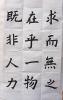 求而無之
在乎一物
既非人力